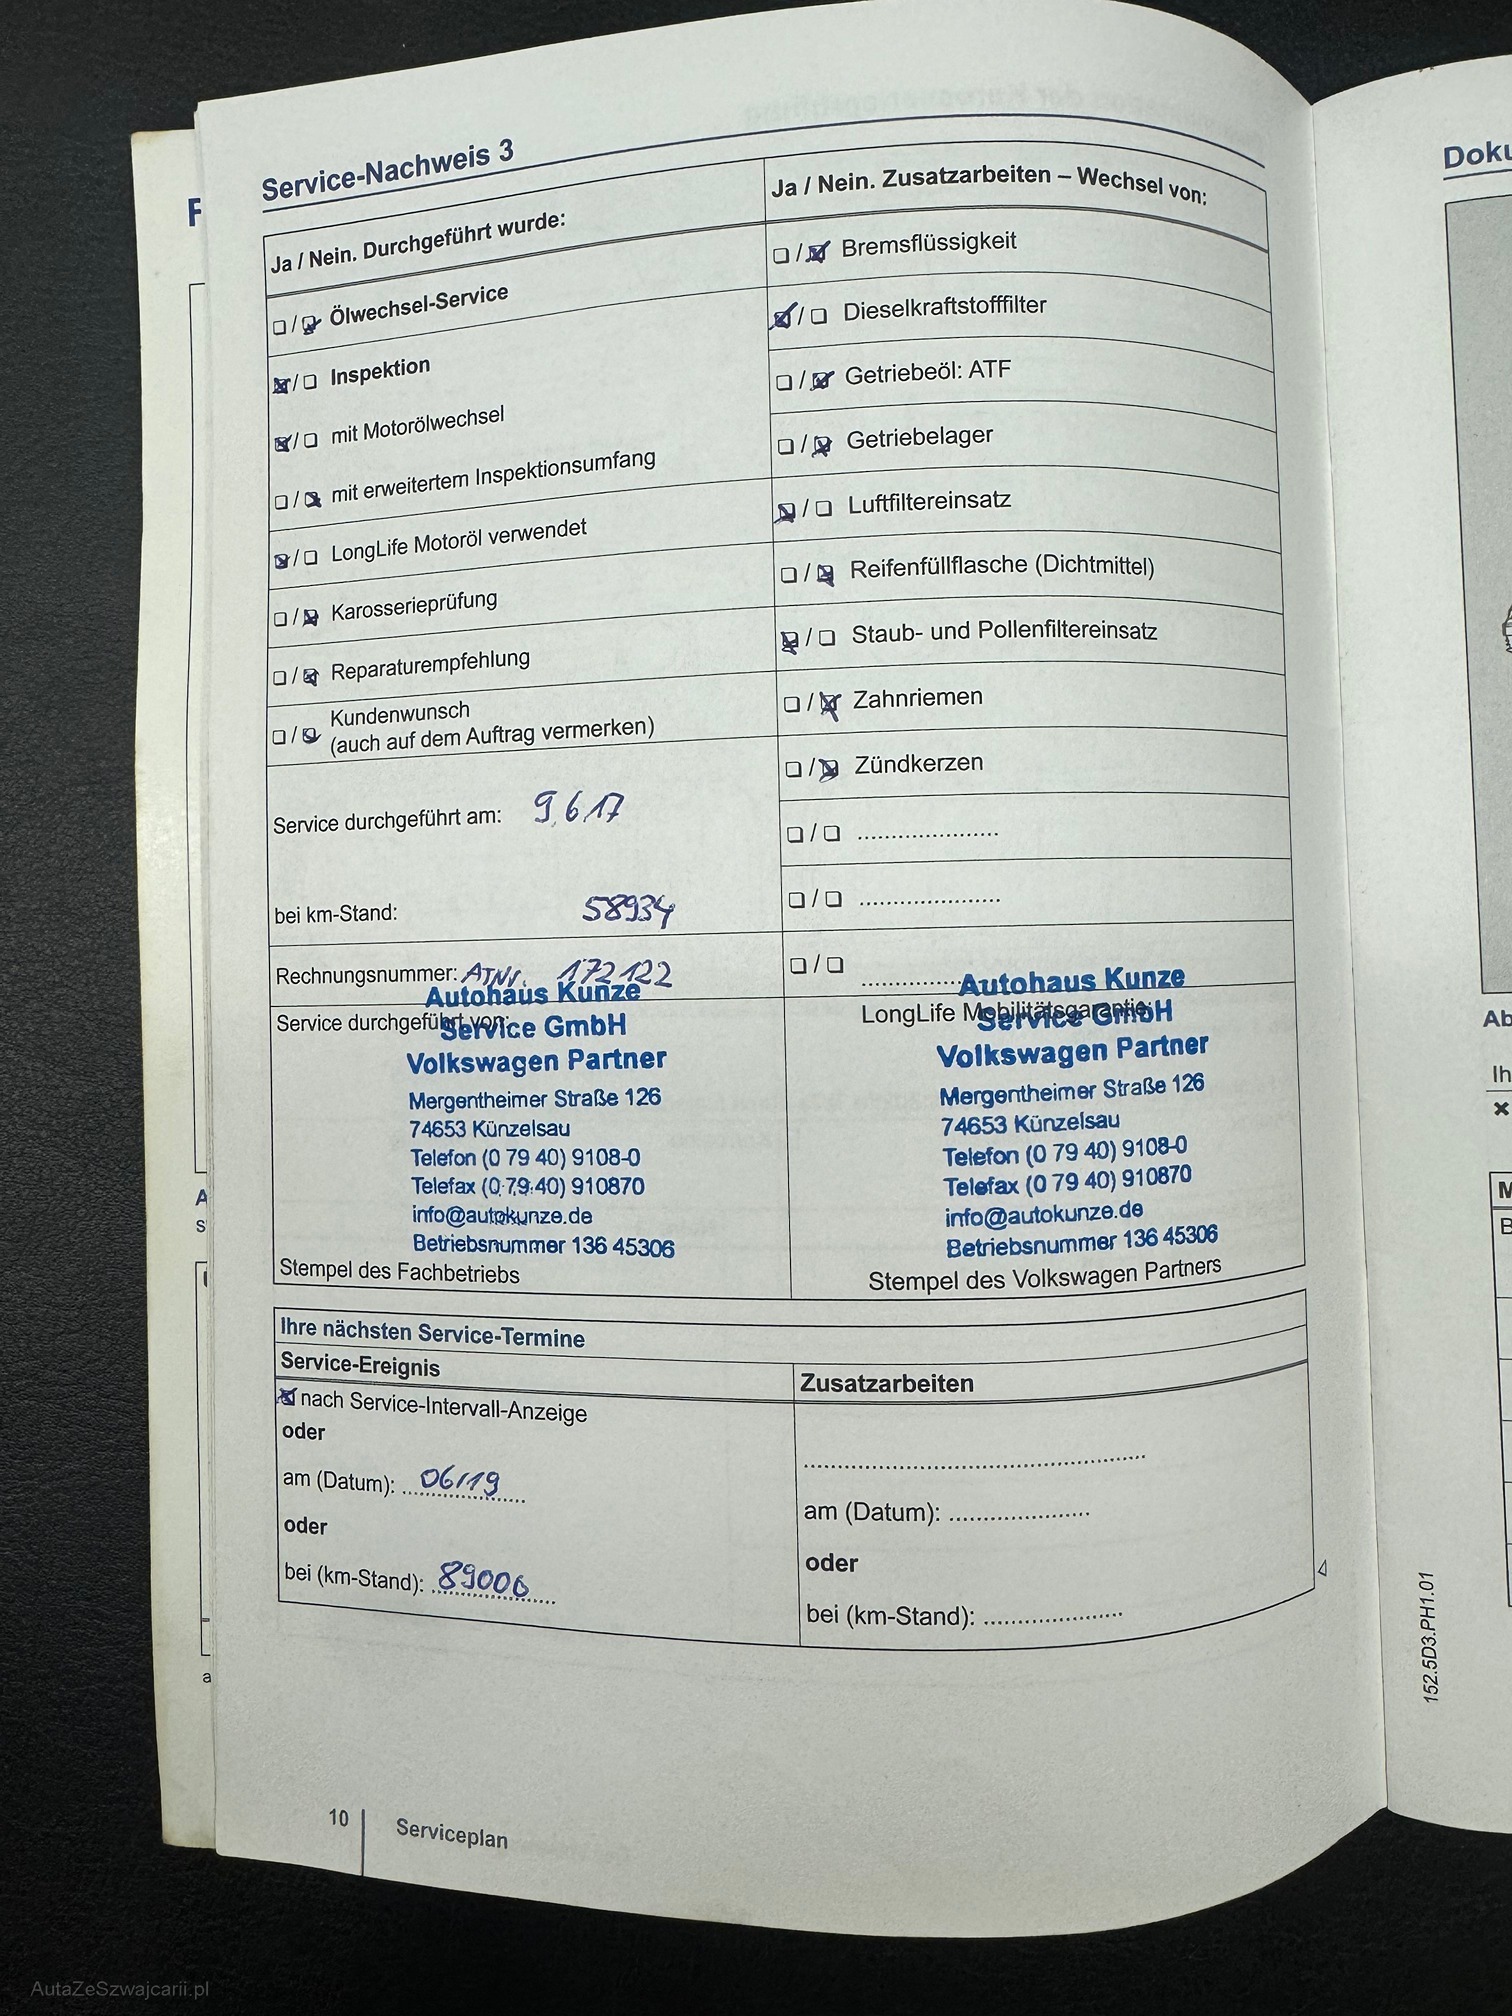 Service-Nachweis 3
Ja / Nein. Durchgeführt wurde:
❏ / ☒ Ölwechsel-Service
☒ / ❏ Inspektion
☒ / ❏ mit Motorölwechsel
❏ / ☒ mit erweitertem Inspektionsumfang
☒ / ❏ LongLife Motoröl verwendet
❏ / ☒ Karosserieprüfung
❏ / ☒ Reparaturempfehlung
❏ / ☒ Kundenwunsch
(auch auf dem Auftrag vermerken)
Service durchgeführt am: 9.6.17
bei km-Stand: 58934
Rechnungsnummer: ATNr. 172122
Service durchgeführt von:
Autohaus Kunze
Service GmbH
Volkswagen Partner
Mergentheimer Straße 126
74653 Künzelsau
Telefon (0 79 40) 9108-0
Telefax (0 79 40) 910870
info@autokunze.de
Betriebsnummer 136 45306
Stempel des Fachbetriebs
Ja / Nein. Zusatzarbeiten – Wechsel von:
❏ / ☒ Bremsflüssigkeit
☒ / ❏ Dieselkraftstofffilter
❏ / ☒ Getriebeöl: ATF
❏ / ☒ Getriebelager
☒ / ❏ Luftfiltereinsatz
❏ / ☒ Reifenfüllflasche (Dichtmittel)
☒ / ❏ Staub- und Pollenfiltereinsatz
❏ / ☒ Zahnriemen
❏ / ☒ Zündkerzen
❏ / ❏ .....................
❏ / ❏ .....................
❏ / ❏ .....................
LongLife Mobilitätsgarantie:
Autohaus Kunze
Service GmbH
Volkswagen Partner
Mergentheimer Straße 126
74653 Künzelsau
Telefon (0 79 40) 9108-0
Telefax (0 79 40) 910870
info@autokunze.de
Betriebsnummer 136 45306
Stempel des Volkswagen Partners
Ihre nächsten Service-Termine
Service-Ereignis
☒ nach Service-Intervall-Anzeige
oder
am (Datum): 06/19
oder
bei (km-Stand): 89000
Zusatzarbeiten
.....................
am (Datum): .....................
oder
bei (km-Stand): .....................
10
Serviceplan
152.5D3.PH1.01
AutaZeSzwajcarii.pl